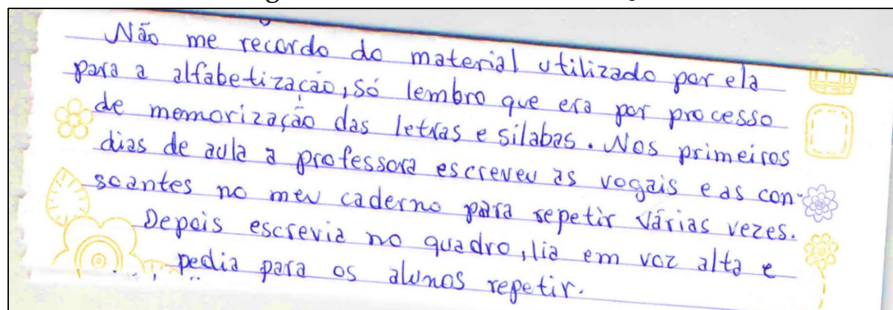 Não me recordo do material utilizado por ela
para a alfabetização, só lembro que era por processo
de memorização das letras e silabas. Nos primeiros
dias de aula a professora escreveu as vogais e as con-
soantes no meu caderno para repetir várias vezes.
Depois escrevia no quadro, lia em voz alta e
pedia para os alunos repetir.